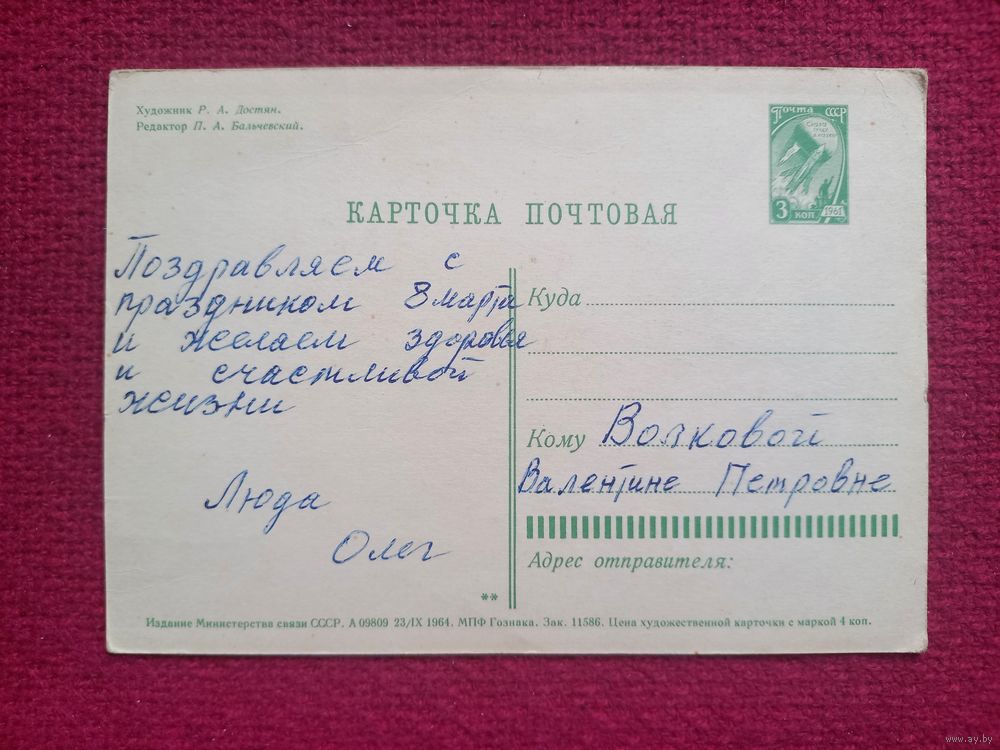 Художник Р. А. Достян.
Редактор П. А. Бальчевский.
Почта СССР
3 коп
1961
КАРТОЧКА ПОЧТОВАЯ
Поздравляем с
праздником 8 марта
и желаем здоровья
и счастливой
жизни
Люда
Олег
**
Куда
Кому Волковой
Валентине Петровне
Адрес отправителя:
Издание Министерства связи СССР. А 09809 23/IX 1964. МПФ Гознака. Зак. 11586. Цена художественной карточки с маркой 4 коп.
www.ay.by